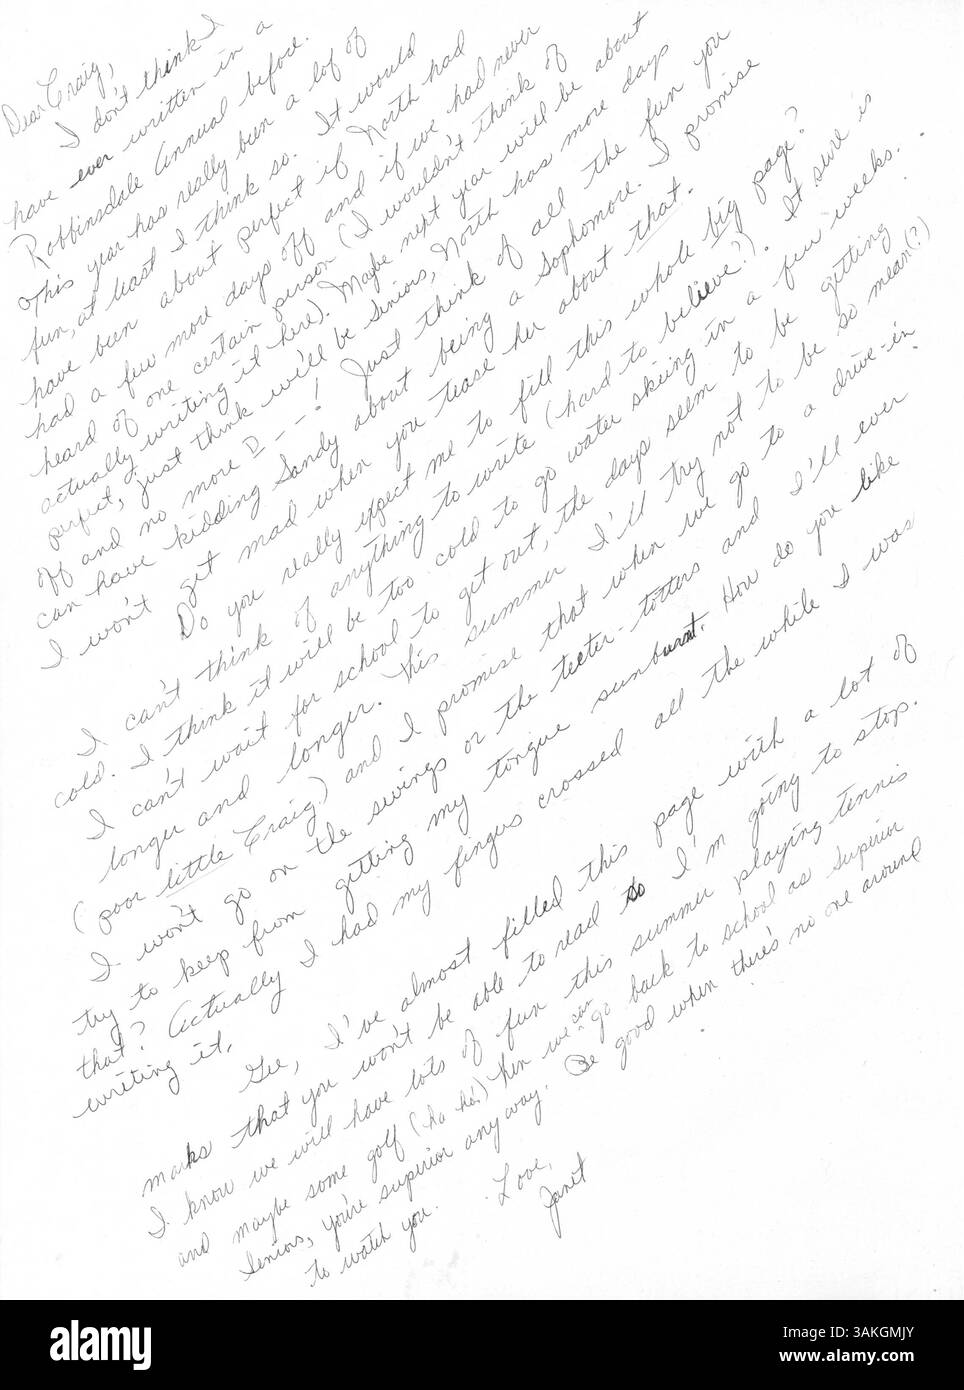 Dear Craig,
I don't think I
have ever written in a
Robbinsdale Annual before.
This year has really been a lot of
fun, at least I think so. It would
have been about perfect if North had
had a few more days off and if we had never
heard of one certain person (I wouldn't think of
actually writing it here). Maybe next year will be about
perfect, just think we'll be Seniors, North has more days
off and no more D--! Just think of all the fun you
can have kidding Sandy about being a Sophomore. I promise
I won't get mad when you tease her about that.
Do you really expect me to fill this whole big page?
I can't think of anything to write (hard to believe?). It sure is
cold. I think it will be too cold to go water skiing in a few weeks.
I can't wait for school to get out, the days seem to be getting
longer and longer. This summer I'll try not to be so mean(?)
(poor little Craig) and I promise that when we go to a drive-in
I won't go on the swings or the teeter-totters and I'll ever
try to keep from getting my tongue sunburnt. How do you like
that? Actually I had my fingers crossed all the while I was
writing it.
Gee, I've almost filled this page with a lot of
marks that you won't be able to read so I'm going to stop.
I know we will have lots of fun this summer playing tennis
and maybe some golf (ha ha!) then we can go back to school as superior
Seniors, you're superior anyway. Be good when there's no one around
to watch you.
Love,
Janet
alamy
Image ID: 3AKGMJY
www.alamy.com